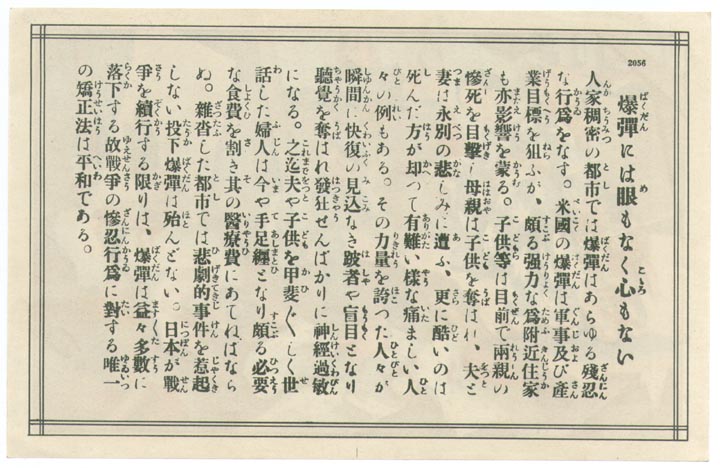 2056
爆彈には眼もなく心もない
人家稠密の都市では爆彈はあらゆる殘忍
な行爲をなす。米國の爆彈は軍事及び產
業目標を狙ふが、頗る强力な爲附近住家
も亦影響を蒙る。子供等は目前で兩親の
慘死を目擊し母親は子供を奪はれ、夫と
妻は永別の悲しみに遭ふ、更に酷いのは
死んだ方が却つて有難い樣な痛ましい人
々の例もある。その力量を誇つた人々が
瞬間に快復の見込なき跛者や盲目となり
聽覺を奪はれ發狂せんばかりに神經過敏
になる。之迄夫や子供を甲斐〲しく世
話した婦人は今や手足纏となり頗る必要
な食費を割き其の醫療費にあてねばなら
ぬ。雜沓した都市では悲劇的事件を惹起
しない投下爆彈は殆んどない。日本が戰
爭を續行する限りは、爆彈は益々多數に
落下する故戰爭の慘忍行爲に對する唯一
の矯正法は平和である。